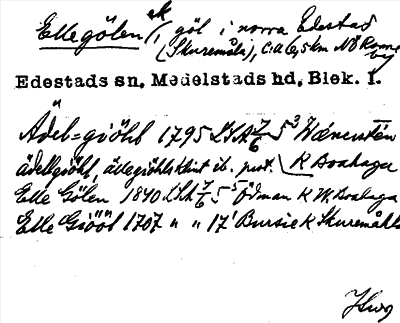 Ellegölen sk/, göl i norra Edestad
(Skuremåla), c:a 6,5 km NÖ Ronne
by
Edestads sn, Medelstads hd, Blek. l.
Ädel=giöhl 1795 LSA 7/6 5 3
ädellgiöhl, ällegiöhlsklint ib. K Boahaga
Elle Gölen 1840 LSA 7/6 5 5 Ödman K W. Boahaga
Elle Giööl 1707 " " 17 1 Bursie K Skuremåhla